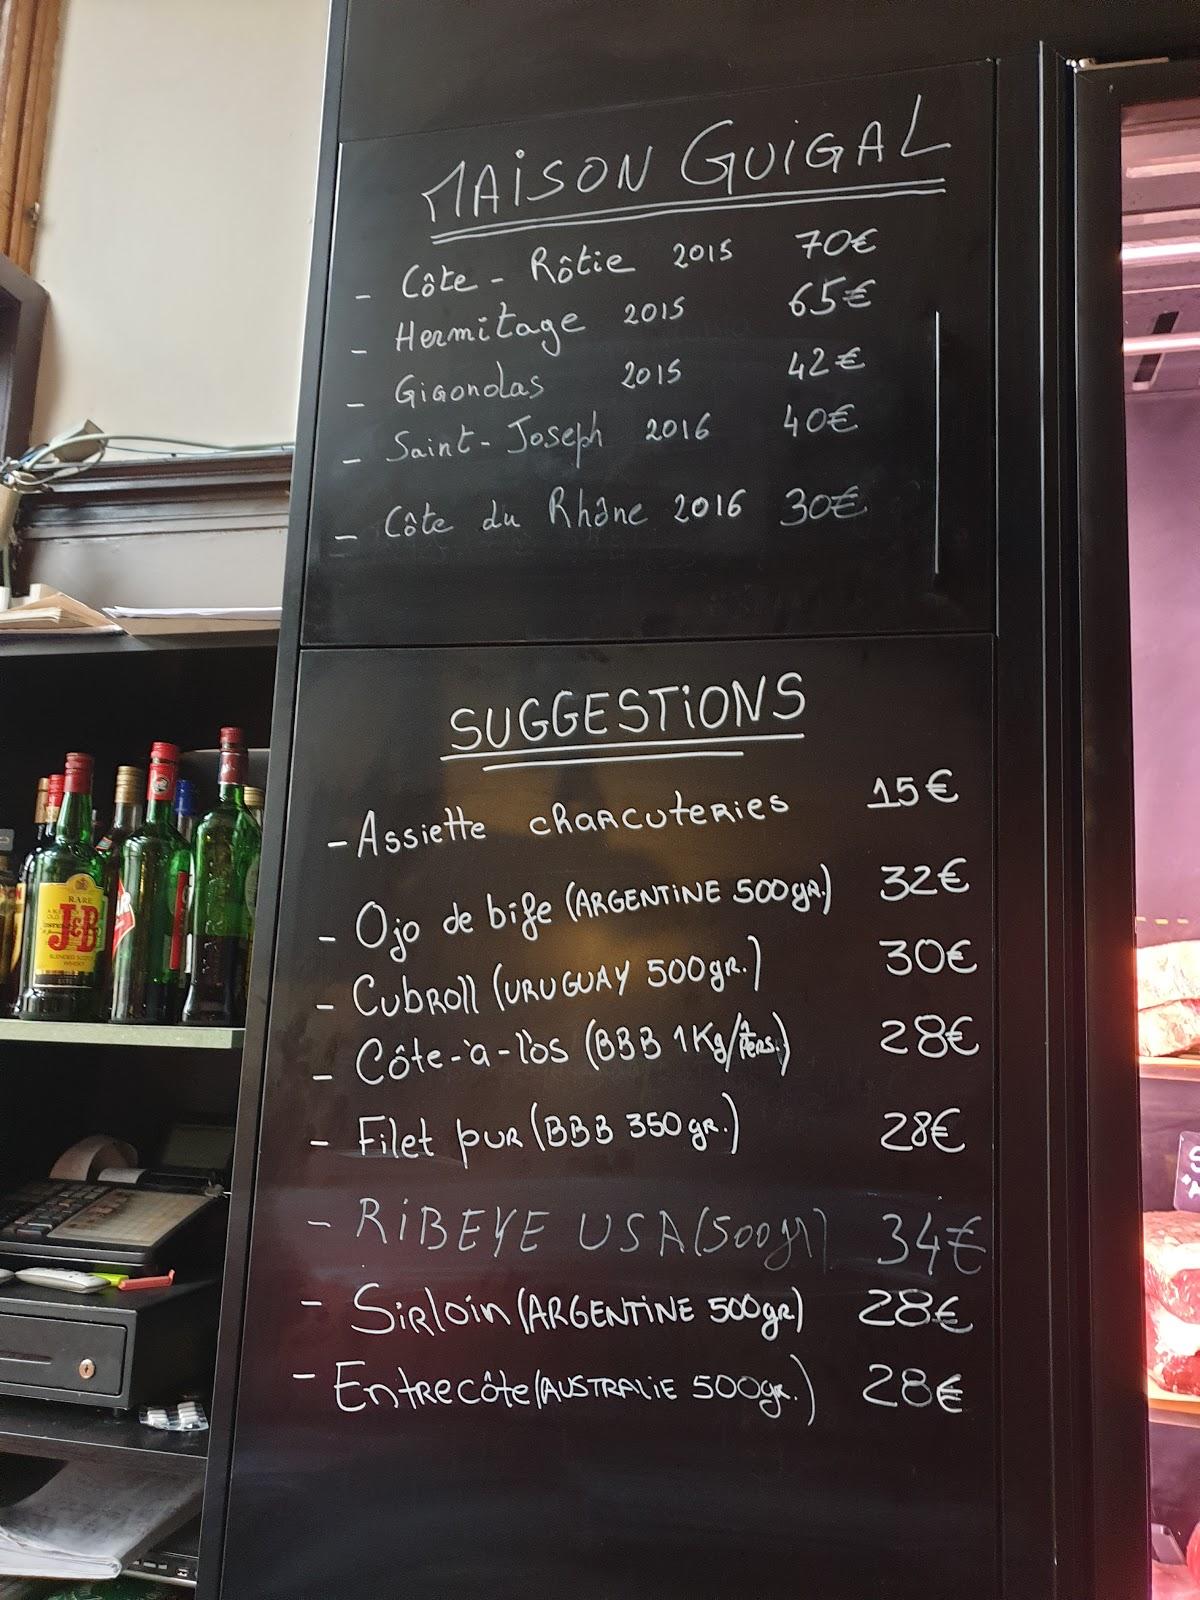 MAISON GUIGAL
- Côte - Rôtie 2015 70€
- Hermitage 2015 65€
- Gigondas 2015 42€
- Saint-Joseph 2016 40€
- Côte du Rhône 2016 30€
SUGGESTIONS
- Assiette charcuteries 15€
- Ojo de bife (ARGENTINE 500gr.) 32€
- Cubroll (URUGUAY 500gr.) 30€
- Côte-à-l'os (BBB 1Kg/Pers.) 28€
- Filet pur (BBB 350gr.) 28€
- RIBEYE USA (500gr) 34€
- Sirloin (ARGENTINE 500gr) 28€
- Entrecôte (AUSTRALIE 500gr.) 28€
RARE
J&B
BLENDED SCOTCH
WHISKY